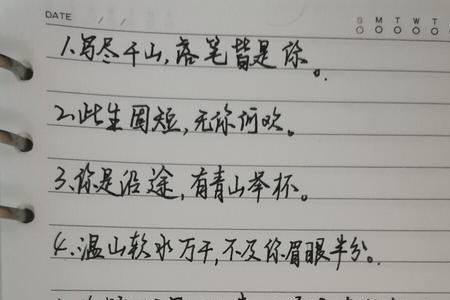 DATE
S M T W T
1.写尽千山,落笔皆是你。
2.此生固短,无你何欢。
3.你是沿途,有青山举杯。
4.温山软水万千,不及你眉眼半分。